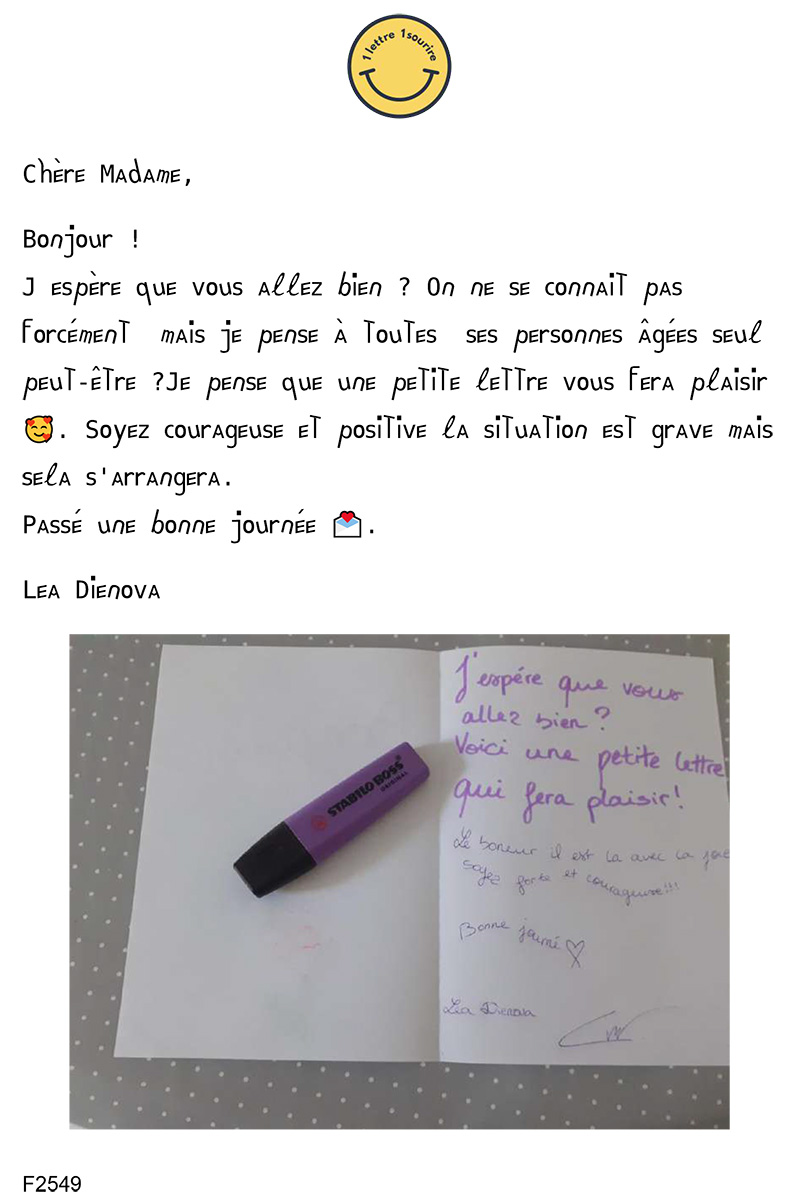 1 lettre 1 sourire
Chère Madame,
Bonjour !
J espère que vous allez bien ? On ne se connait pas
forcément mais je pense à toutes ses personnes âgées seul
peut-être ?Je pense que une petite lettre vous fera plaisir
🥰. Soyez courageuse et positive la situation est grave mais
sela s'arrangera.
Passé une bonne journée 💌.
Lea Dienova
J'espére que vous
allez bien ?
Voici une petite lettre
qui fera plaisir!
STABILO BOSS
ORIGINAL
Le boneur il est la avec la joie
soyez forte et courageuse!!!
Bonne journé ♡
Léa Dienova
F2549